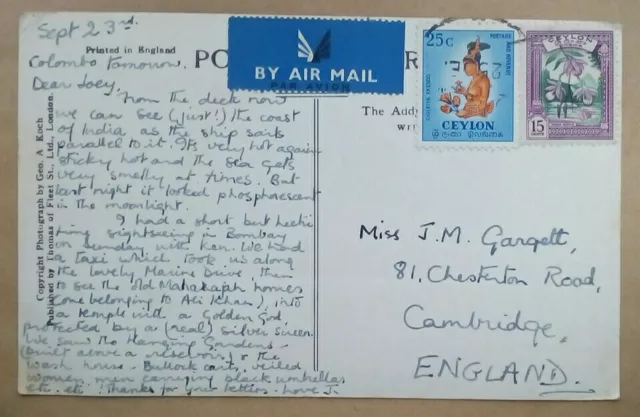 Sept 23rd.
Printed in England
Colombo tomorrow.
PO
R
BY AIR MAIL
PAR AVION
25c
POSTAGE AND REVENUE
SIGIRIYA FRESCO
CEYLON
CEYLON
15
The Add
Dear Joey,
From the deck now
we can see (just!) the coast
of India as the ship sails
parallel to it. It's very hot again
sticky hot and the sea gets
very smelly at times. But
last night it looked phosphorescent
in the moonlight.
I had a short but hecti
sightseeing in Bombay
on Sunday with Ken. We had
a taxi which took us along
the lovely Marine Drive, then
to see the old Maharajah homes
(one belonging to Ali Khan), into
a temple with a Golden God
protected by a (real) silver screen.
We saw the Hanging Gardens
(built above a reservoir) & the
wash house. Bullock carts, veiled
women, men carrying black umbrellas
etc. etc. Thanks for your letters. Love J.
Copyright Photograph by Geo. A Koch
Published by Thomas of Fleet St., Ltd., London.
Miss J.M. Gargett,
81, Chesterton Road,
Cambridge,
ENGLAND.